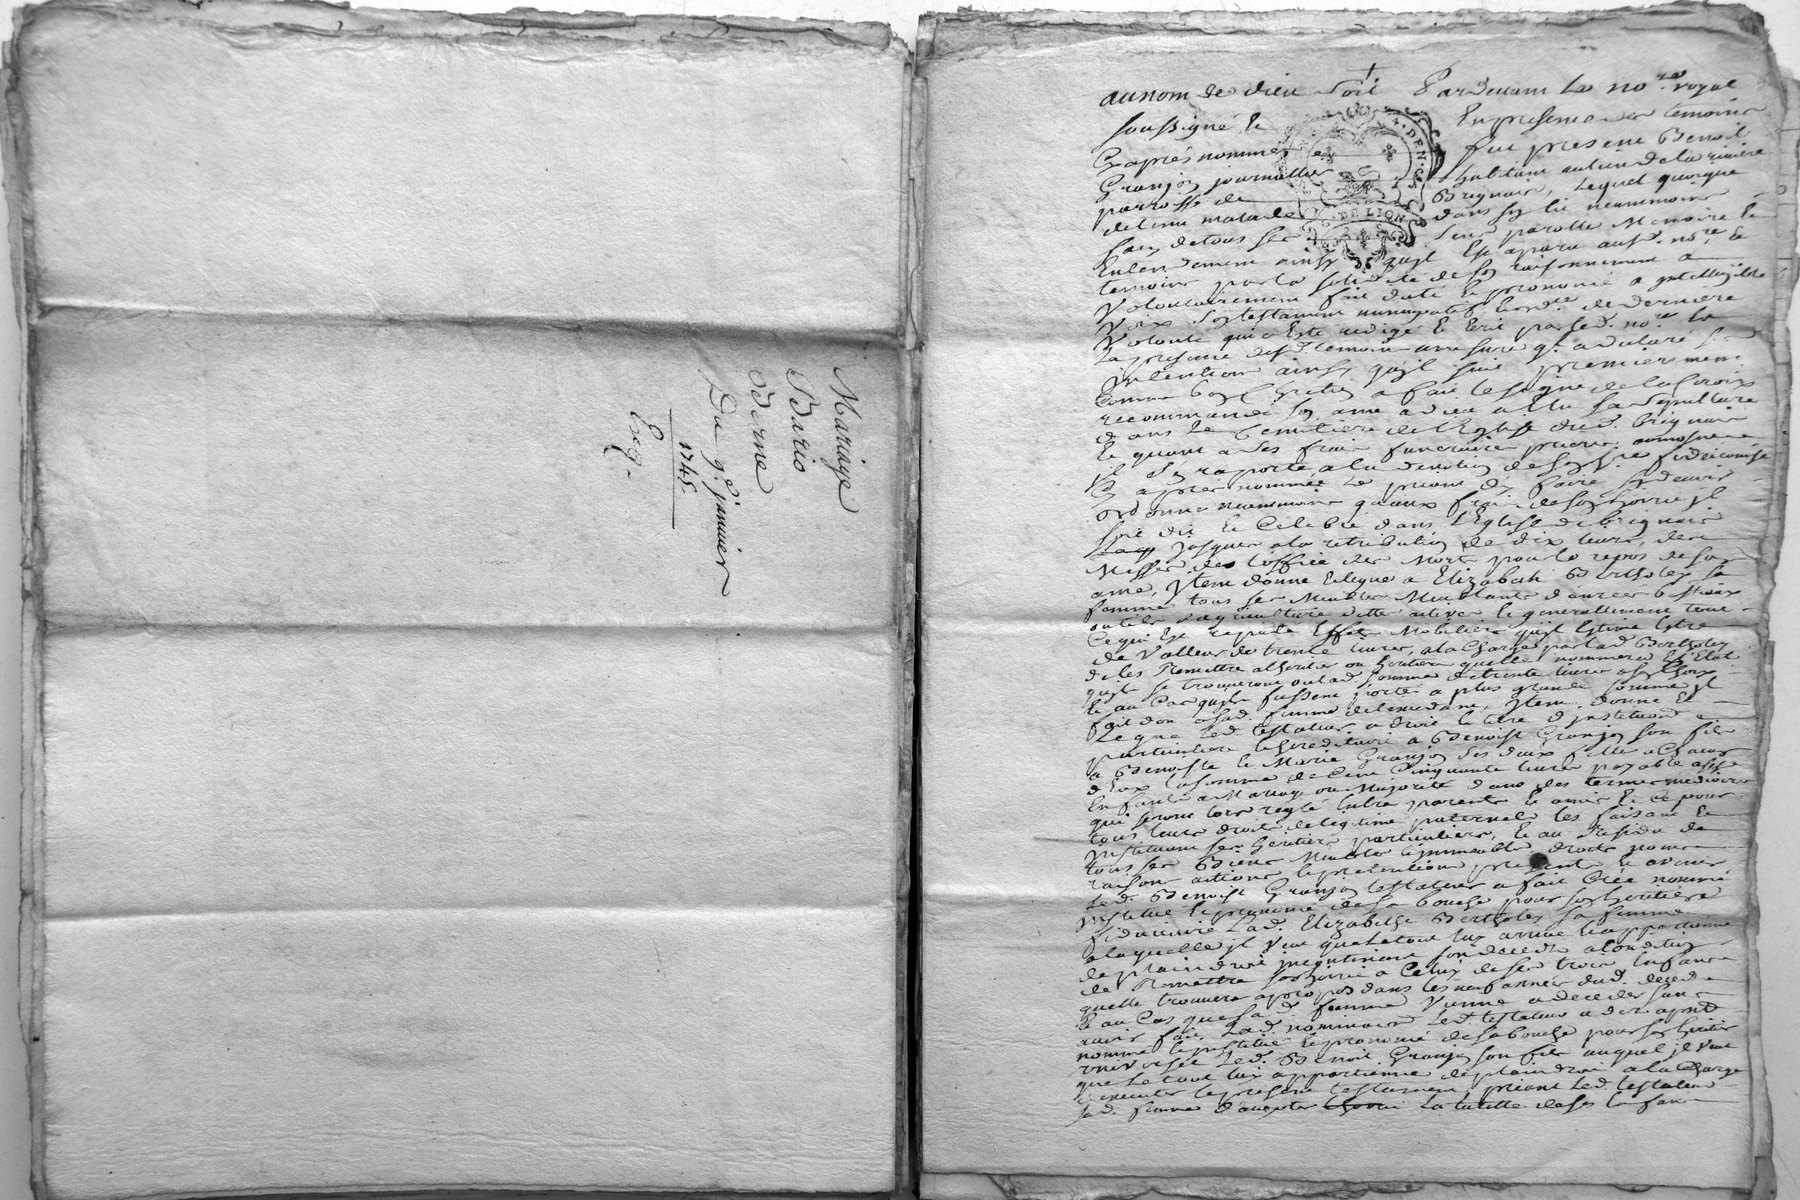 Mariage
Bario
Berne
Du 9e janvier
1745
Exp.
au nom de dieu soit Pardevant Le nore royal
soussigné et En presence des temoins
Cy aprés nommés fut present Benoit
Granjon journallier habitant au lieu de la riviere
parroisse de Brignais, Lequel quoique
detenu malade dans son lit neanmoins
sain de tous ses sens parolle Memoire et
Entendement ainsy quil Est aparu audt. nore et
temoins par la solidité de son raisonnement a
Volontairement fait dicté et prononcé a intelligible
Voix son testament nuncupatif de derniere
Volonté qui a Esté redigé et Ecrit par led. nore En
La presence desd. temoins a mesure qt. a declaré son
intention ainsy quil suit premierement
Comme bon Cretien a fait le signe de la Croix
recommandé son ame a dieu a Elu sa sepulture
dans Le Cemetiere de l'Eglise dud. brignais
Et quant a ses frais funeraires prieres aumosnes
il s'En raporte a la devotion de son fideicomise
Cy apres nommée Le priant de faire son devoir
ordonne neanmoins qu'aux frais de son hoirie il
soit dit Et Celebré dans l'Eglise de brignais
jusques a la retribution de dix livres, des
Messes de l'office des Morts pour le repos de son
ame, Item donne Et legue a Elizabeth Bertholey sa
femme tous ses Meubles Meublants danrées bestiaux
outils d'agriculture dette actives Et generallement tout
Ce qui Est reputé Effets Mobiliers quil Estime Estre
de Valleur de trente livres, a la Charge par lad. Bertholey
de les Remettre a lheritier ou heritiere quelle nommera En l'Etat
quils se trouveront ou lad. somme de trente livres a son Choix
Et au Cas quils fussent portés a plus grande somme il
fait don a sad. femme de l'excedant, Item donne Et
Legue Led. testateur a droit Et titre d'institution
particuliere Et hereditaire a Benoist Granjon son fils
a Benoiste Et Marie Granjon ses deux filles a Chacun
d'Eux la somme de Cent Cinquante livres payable asd.
Enfants a Mariage ou Majorité dans des termes mediocres
qui seront lors reglé Entre parents Et amis Et Ce pour
tous leurs droits de legitime paternels les faisant Et
instituant ses heritiers particuliers, Et au Residu de
tous ses Biens Meubles Et immeubles droits noms
raisons actions Et pretentions presents Et avenir
Led. Benoist Granjon testateur a fait Crée nommé
institué Et prononcé de sa bouche pour son heritiere
fiduciaire Lad. Elizabeth Bertholey sa femme
a laquelle il Veut que Letout luy arrive Et appartienne
de plain droit incontinant son decedz a Condition
de Remettre son hoirie a Celuy de ses trois Enfans
quelle trouvera apropos dans les neuf années dud. decedz
Et au Cas que sad. femme Vienne a deceder sans
avoir fait Lad. nommation Led. testateur a des aprest
nommé Et institué Et prononcé de sa bouche pour son heritier
universel Led. Benoit Granjon son fils auquel il Veut
que Le tout luy appartienne de plain droit a la Charge
d'executer Le present testament, priant Led. testateur
sad. femme d'accepter La tutelle de ses Enfans
DE LION